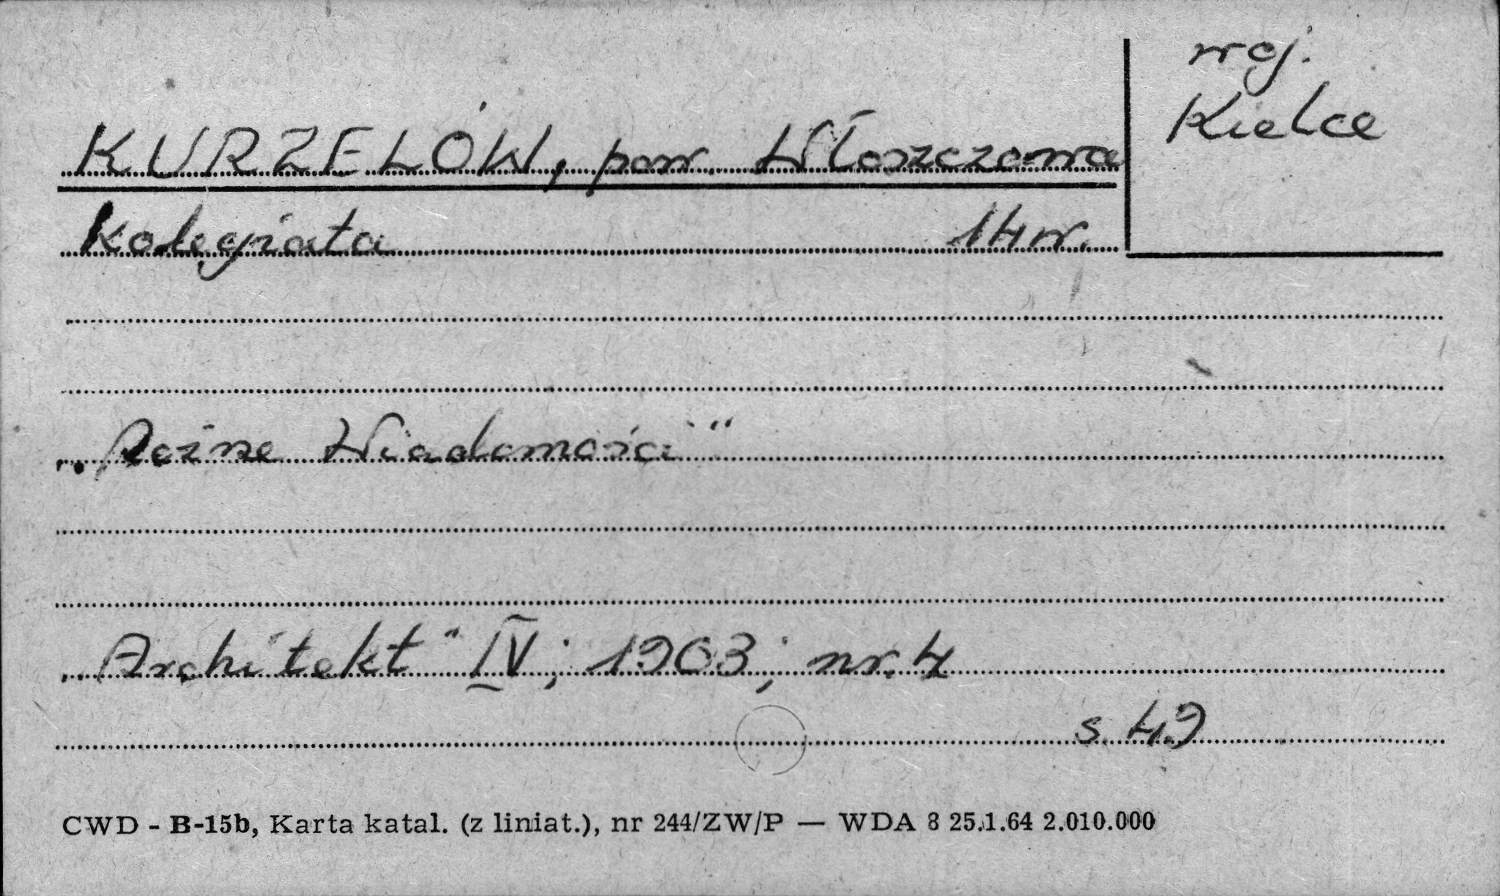 woj.
Kielce
KURZELÓW, pow. Włoszczowa
Kolegiata 14 w.
„Rożne Wiadomości"
„Architekt" IV; 1903; nr. 4
s. 49
CWD - B-15b, Karta katal. (z liniat.), nr 244/ZW/P — WDA 8 25.1.64 2.010.000